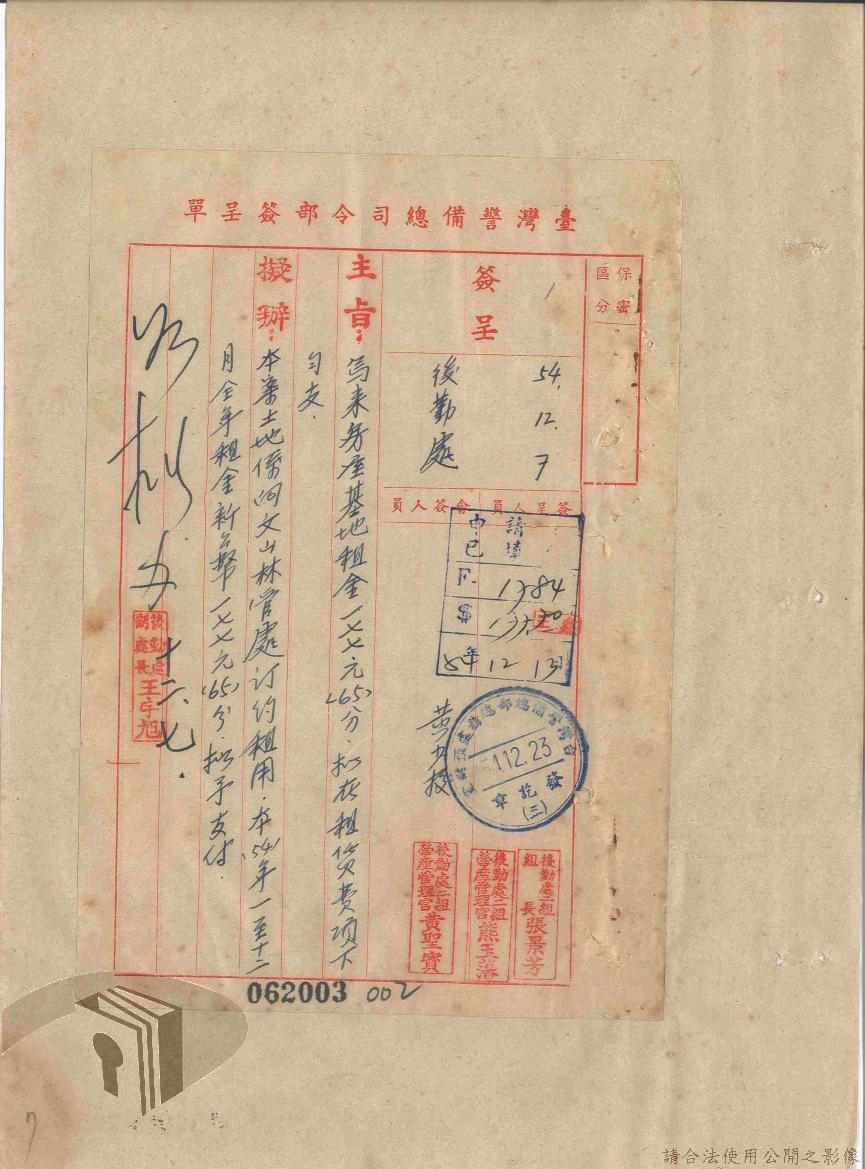 臺灣警備總司令部簽呈單
保密區分
簽呈
1
54. 12. 7
後勤處
簽呈人員
會簽人員
主旨：
為來秀座基地租金一七七元(65)分擬在租賃費項下
勻支．
擬辦：
本案土地係向文山林管處訂約租用．本(54)年一至十二
月全年租金新台幣一七七元(65)分．擬予支付．
十二.七.
後勤處
副處長
請
12 13
54.12.23
發訖章
(三)
後勤處二組
組長張景芳
後勤處二組
營產管理官熊玉藩
後勤處二組
營產管理官黃聖寶
062003 002
7
請合法使用公開之影像